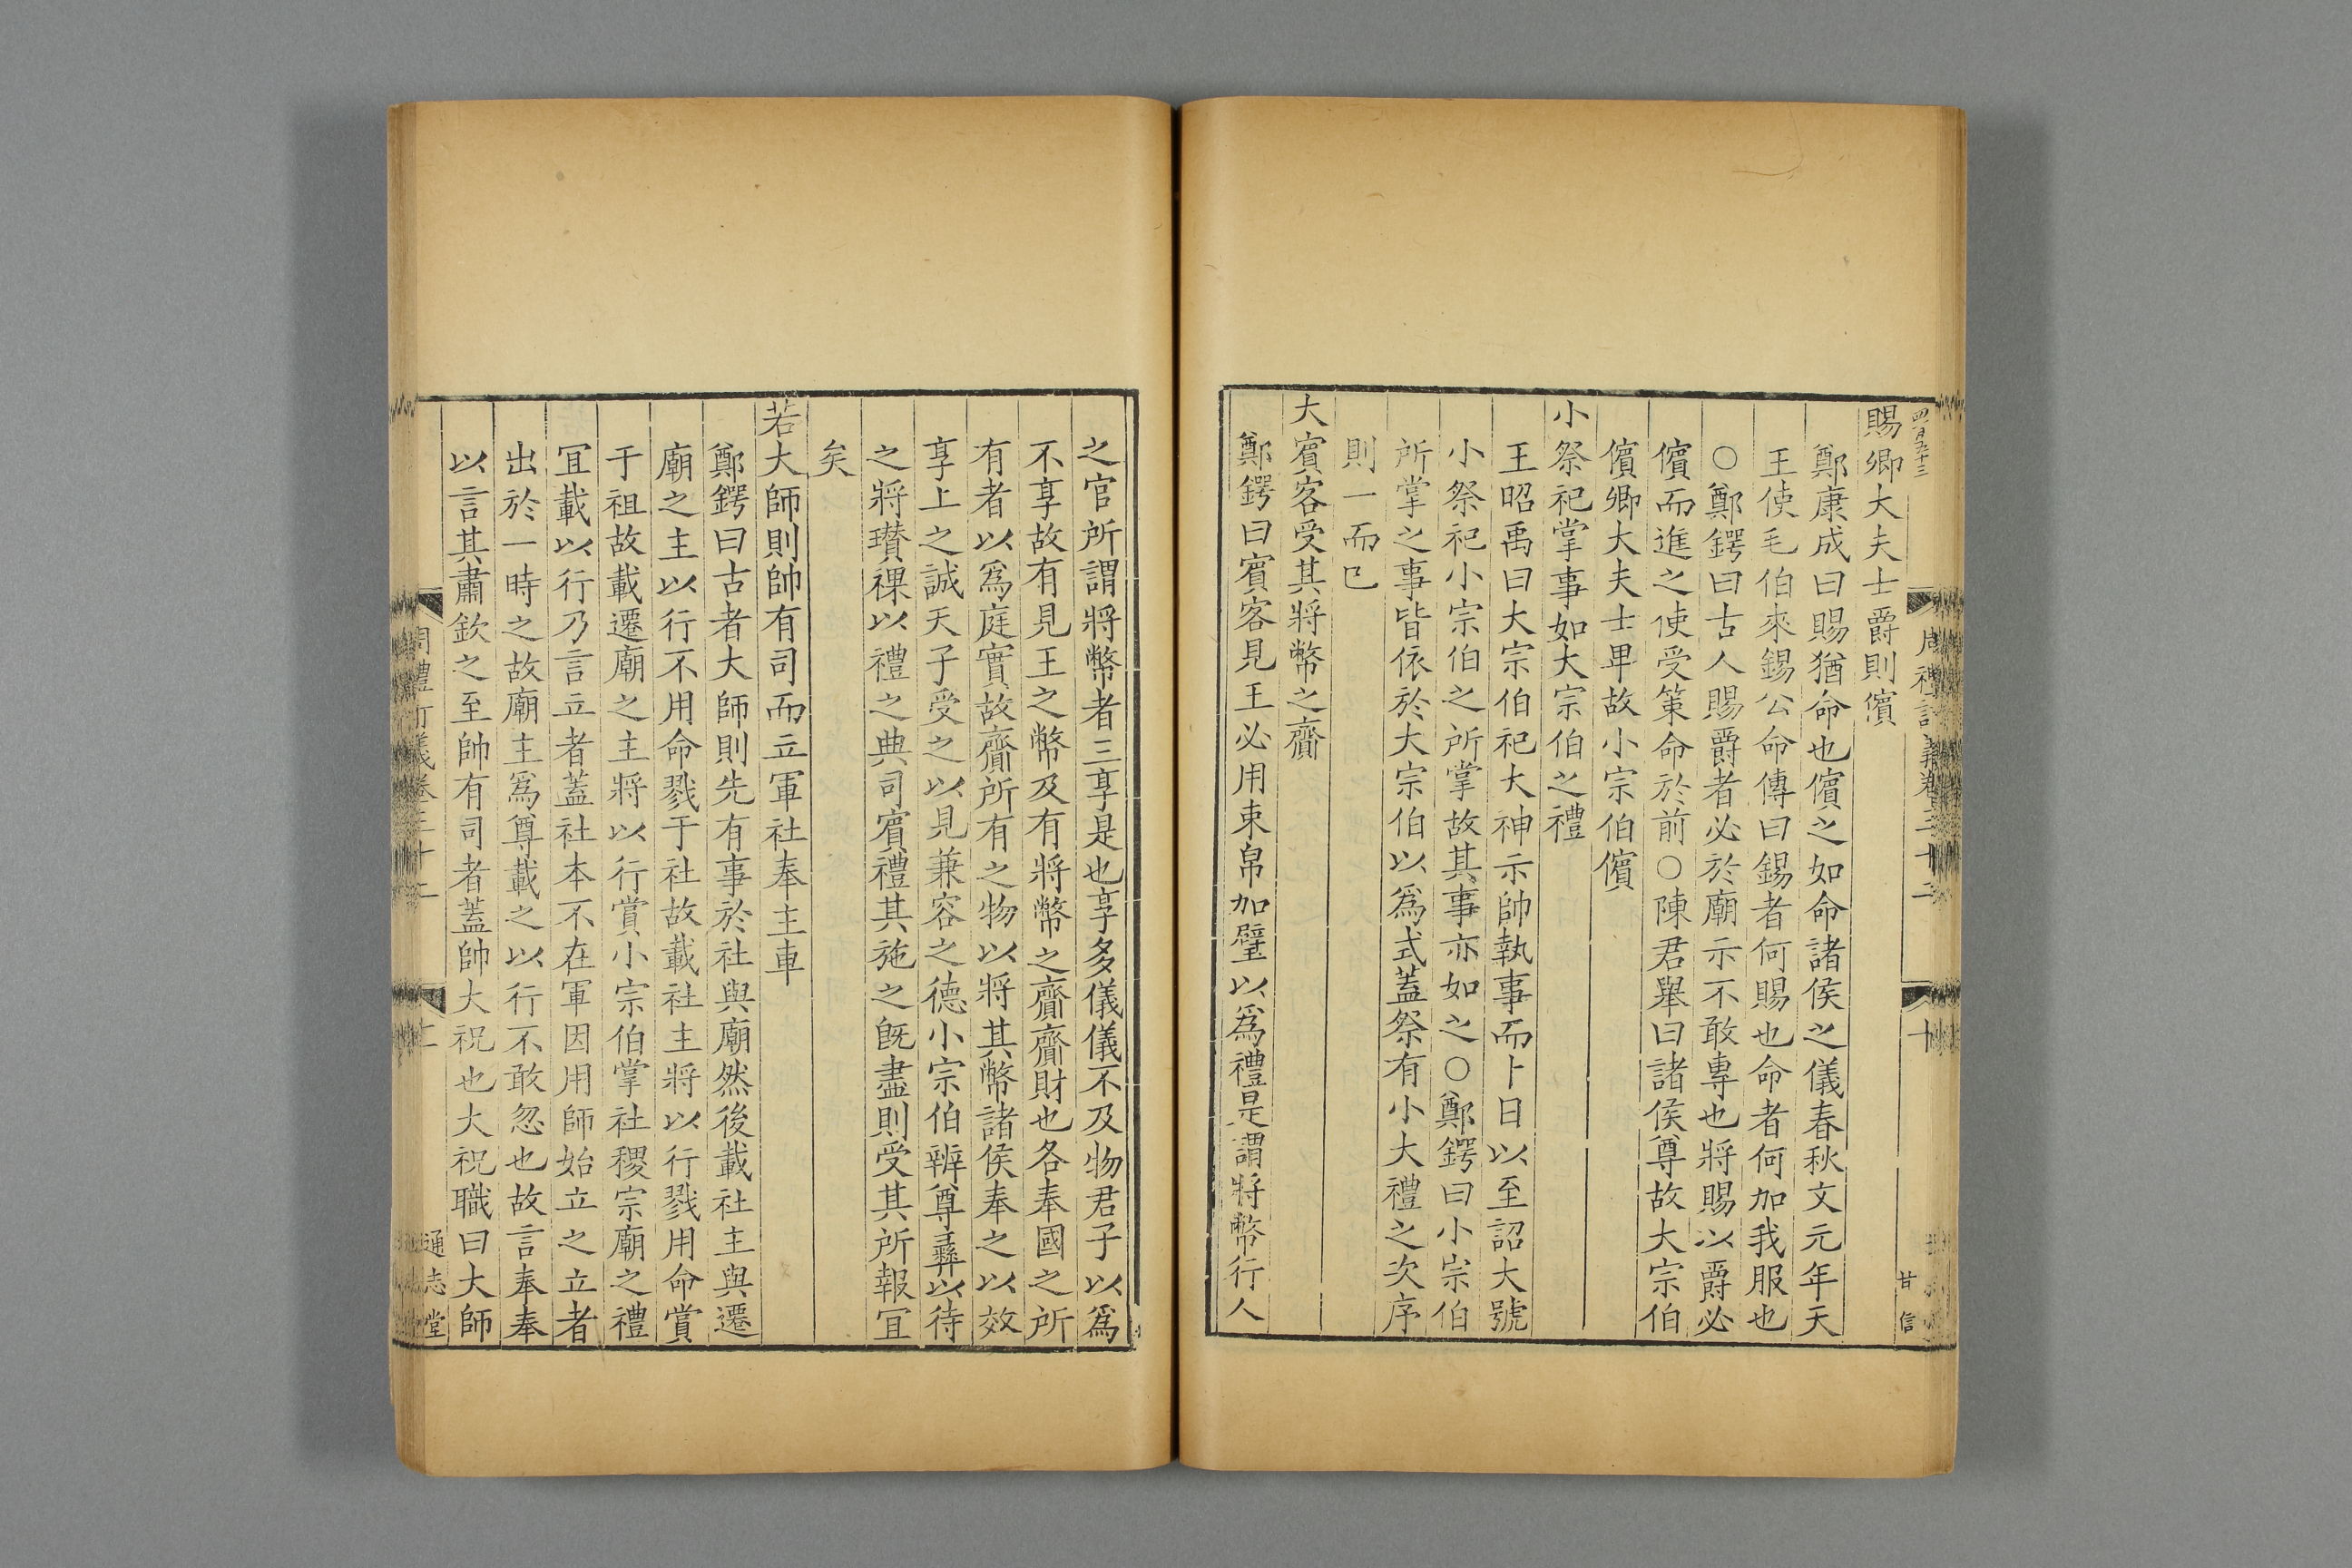 賜卿大夫士爵則儐
鄭康成曰賜猶命也儐之如命諸侯之儀春秋文元年天
王使毛伯來錫公命傳曰錫者何賜也命者何加我服也
○鄭鍔曰古人賜爵者必於廟示不敢專也將賜以爵必
儐而進之使受策命於前○陳君舉曰諸侯尊故大宗伯
儐卿大夫士卑故小宗伯儐
小祭祀掌事如大宗伯之禮
王昭禹曰大宗伯祀大神示帥執事而卜日以至詔大號
小祭祀小宗伯之所掌故其事亦如之○鄭鍔曰小宗伯
所掌之事皆依於大宗伯以爲式蓋祭有小大禮之次序
則一而已
大賓客受其將幣之齎
鄭鍔曰賓客見王必用束帛加璧以爲禮是謂將幣行人
甘信
之官所謂將幣者三享是也享多儀儀不及物君子以爲
不享故有見王之幣及有將幣之齎齎財也各奉國之所
有者以爲庭實故齎所有之物以將其幣諸侯奉之以效
享上之誠天子受之以見兼容之德小宗伯辨尊彞以待
之將瓚祼以禮之典司賓禮其施之旣盡則受其所報宜
矣
若大師則帥有司而立軍社奉主車
鄭鍔曰古者大師則先有事於社與廟然後載社主與遷
廟之主以行不用命戮于社故載社主將以行戮用命賞
于祖故載遷廟之主將以行賞小宗伯掌社稷宗廟之禮
宜載以行乃言立者蓋社本不在軍因用師始立之立者
出於一時之故廟主爲尊載之以行不敢忽也故言奉奉
以言其肅欽之至帥有司者蓋帥大祝也大祝職曰大師
通志堂